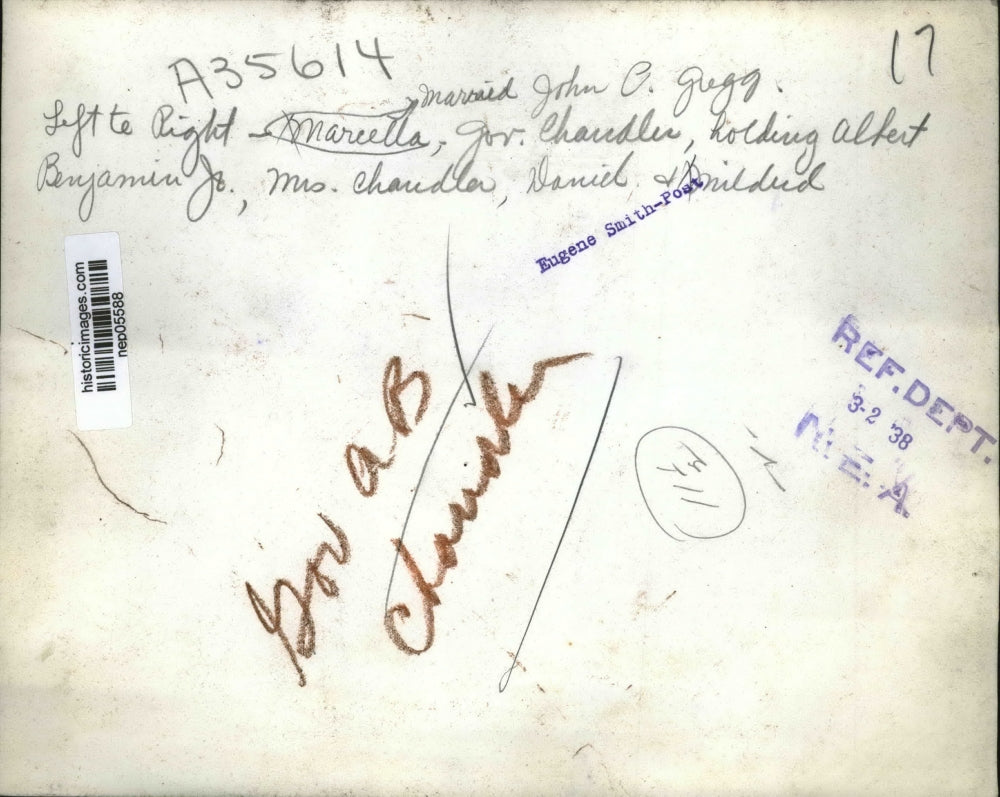 A35614
17
married John C. Gregg.
Left to Right - Marcella, Gov. Chandler, holding Albert
Benjamin Jr., Mrs. Chandler, Daniel, & Mildred
Eugene Smith-Post
historicimages.com
nep05588
REF. DEPT.
3-2 '38
N.E.A.
Gov A B
Chandler